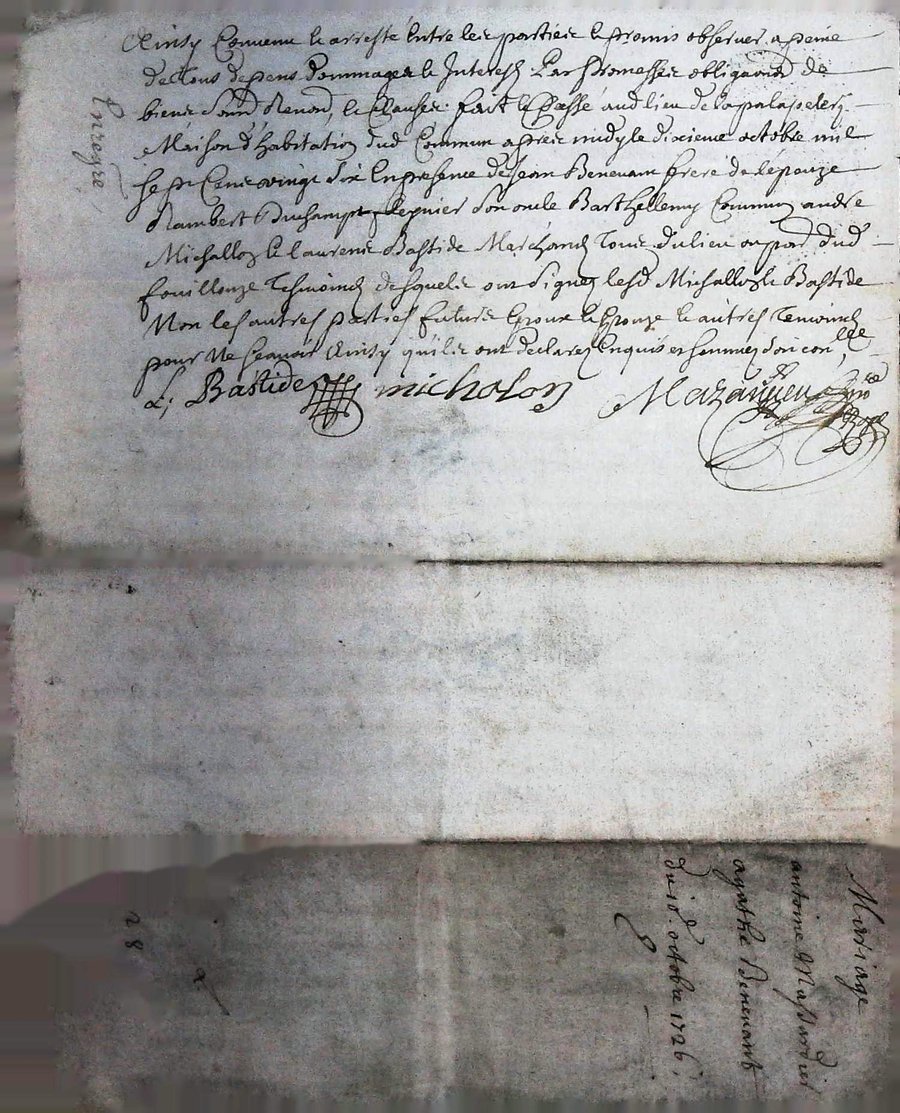 Ainsy Convenu & arresté entre les parties & promis observer a peine
de tous depens dommages & Interest Par Promesses obligaōn de
biens Renōn, & Clauses fait & Passé aud lieu de
Maison d'habitation dud Commun apres midy le dixieme octobre mil
sept Cent vingt six En presence de Jean Benevant frere de l'epouze
Rambert Duchampt son oncle Barthellemy Commun andré
Michallon & laurens Bastide Marchand Tous du lieu dud
fouillouze Tesmoins desquels ont signez lesd Michallon & Bastide
Non les autres parties future Epoux & Epouze & autres Temoins
pour Ne scavoir Ainsy qu'ils ont declarez Enquis et sommez
L; Bastide michalon Mazan
Enregré
Mariage
antoine Massardier
agathe Benevant
du 10e octobre 1726.
28